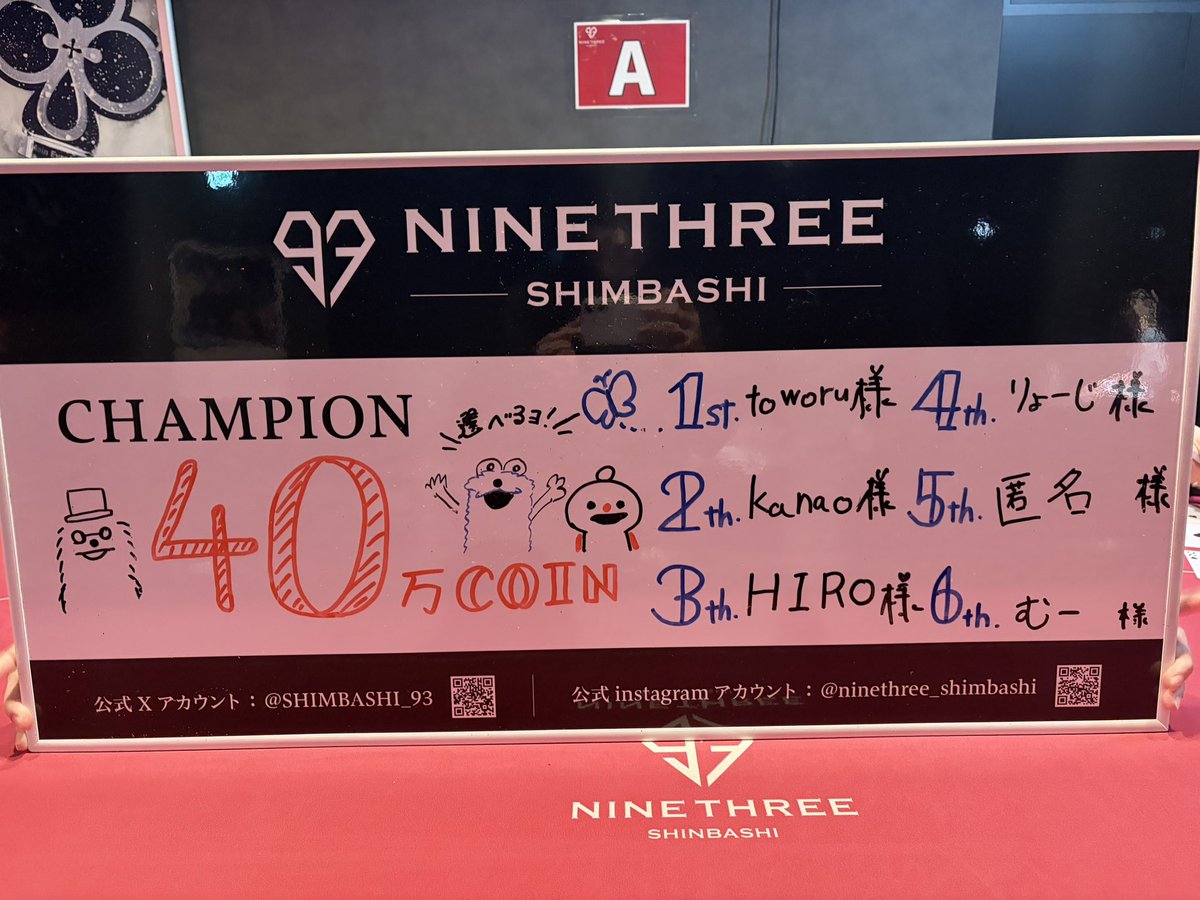 NINE THREE
A
93 NINE THREE
SHIMBASHI
CHAMPION
選べるヨ!
40万COIN
1st. toworu様
2th. kanao様
3th. HIRO様
4th. りょーじ様
5th. 匿名 様
6th. むー 様
公式 X アカウント：@SHIMBASHI_93
公式 instagram アカウント：@ninethree_shimbashi
NINE THREE
SHINBASHI